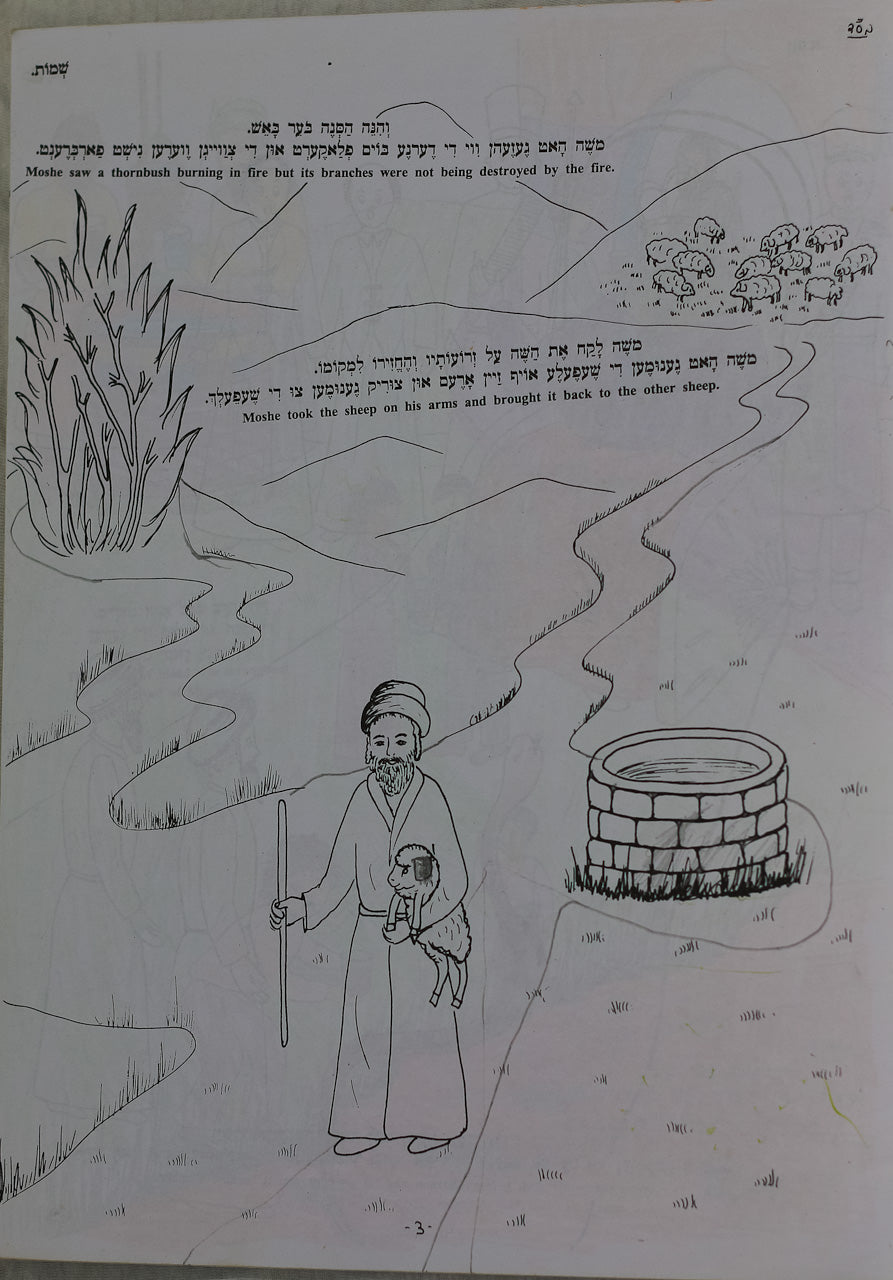 שְׁמוֹת.
וְהִנֵּה הַסְּנֶה בֹּעֵר בָּאֵשׁ.
משֶׁה הָאט געֶזעֶהן ווִי דִי דֶערְנעֶ בּוֹים פְלַאקֶערְט אוּן דִי צְווייגְן ווֶערעֶן נִישְׁט פַארְבְּרֶענְט.
Moshe saw a thornbush burning in fire but its branches were not being destroyed by the fire.
משֶׁה לָקַח אֶת הַשֶּׂה עַל זְרוֹעוֹתָיו וְהֶחֱזִירוֹ לִמְקוֹמוֹ.
משֶׁה הָאט געֶנוּמעֶן דִי שֶׁעפעֶלעֶ אוֹיף זַיין אָרעֶם אוּן צוּרִיק געֶנוּמעֶן צוּ דִי שֶׁעפעֶלְךְ.
Moshe took the sheep on his arms and brought it back to the other sheep.
-3-